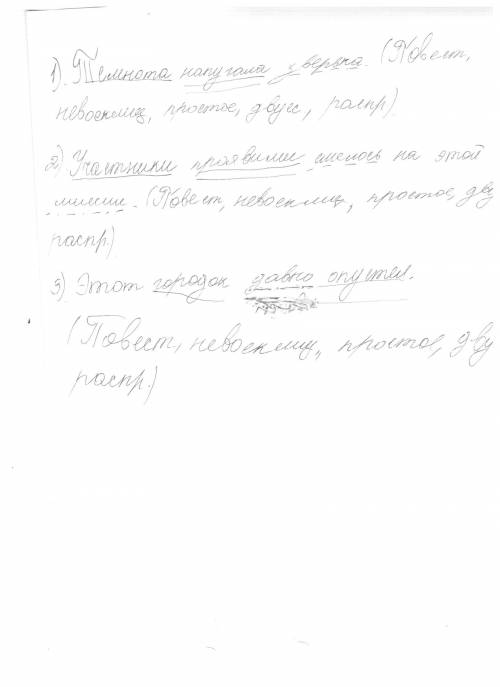 1). Темнота напугала зверька. (Повест,
невосклиц, простое, двусс, распр).
2) Участники проявили смелость на этой
миссии. (Повест, невосклиц, простое, дву
распр.)
3) Этот городок давно опустел.
(Повест, невосклиц, простое, дву
распр.)